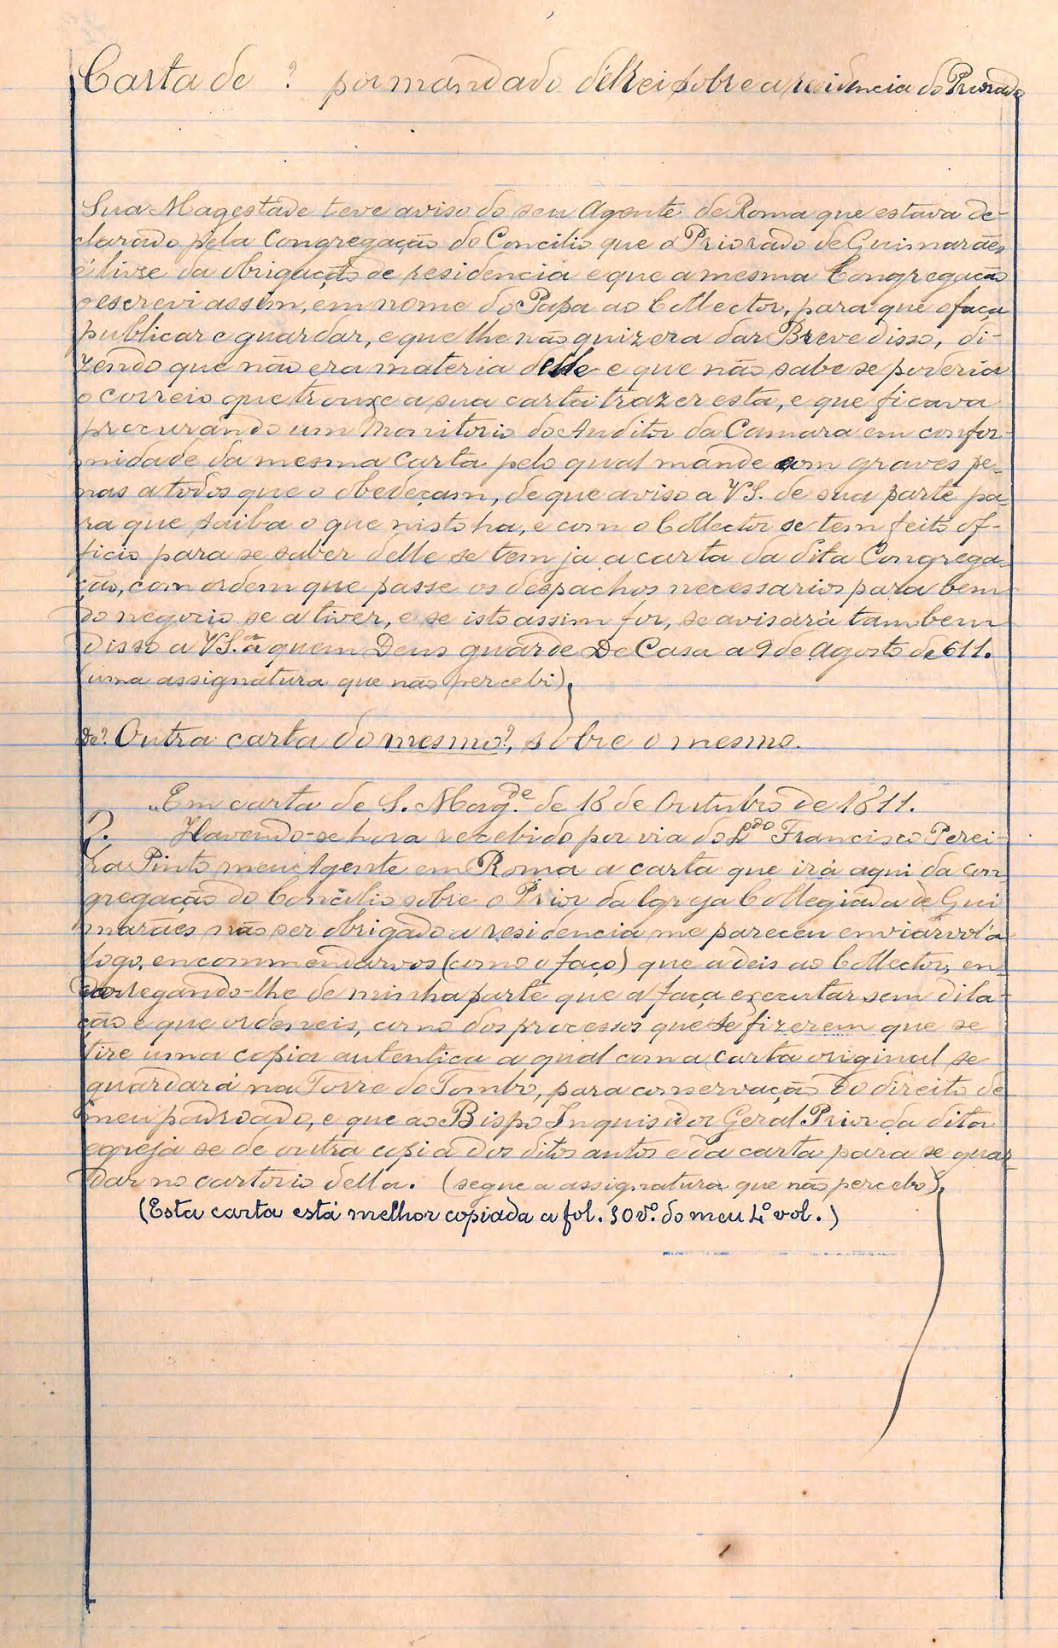 Carta de ? por mandado d'ElRei sobre a residencia do Priorado
Sua Magestade teve aviso do seu Agente de Roma que estava de-
clarado pela Congregação do Concilio que o Priorado de Guimarães
é livre da obrigação de residencia e que a mesma Congregação
o escrevi assim, em nome do Papa ao Collector, para que o faça
publicar e guardar, e que lhe não quizera dar Breve disso, di-
zendo que não era materia delle e que não sabe se poderia
o correio que trouxe a sua carta trazer esta, e que ficava
procurando um Monitorio do Auditor da Camara em confor-
midade da mesma Carta pelo qual mande com graves pe-
nas a todos que o obedeçam, de que aviso a VS. de sua parte pa-
ra que saiba o que nisto ha, e com o Collector se tem feito of-
ficio para se saber delle se tem ja a carta da dita Congrega-
ção, com ordem que passe os despachos necessarios para bem
do negocio se a tiver, e se isto assim for, se avisará tambem
disso a VS.ª a quem Deus guarde De Casa a 9 de Agosto de 611.
(uma assignatura que não percebi)
De? Outra carta do mesmo?, sobre o mesmo.
"Em carta de S. Mag.de de 18 de Outubro de 1611.
?. Havendo-se hora recebido por via do L.do Francisco Perei-
ra Pinto meu Agente em Roma a carta que irá aqui da con-
gregação do Concilio sobre o Prior da Igreja Collegiada de Gui
marães não ser obrigado a residencia me pareceu enviarvol'a
logo, encommendarvos (como o faço) que a deis ao Collector, en-
carregando-lhe de minha parte que a faça executar sem dila-
ção e que ordeneis, como dos processos que se fizerem que se
tire uma copia autentica a qual com a carta original se
guardará na Torre do Tombo, para conservação do direito de
meu padroado, e que ao Bispo Inquisidor Geral Prior da dita
egreja se de outra copia dos ditos autos e da carta para se guar
dar no cartorio della. (segue a assignatura que não percebo)
(Esta carta está melhor copiada a fol. 30 vº. do meu 4º vol.)